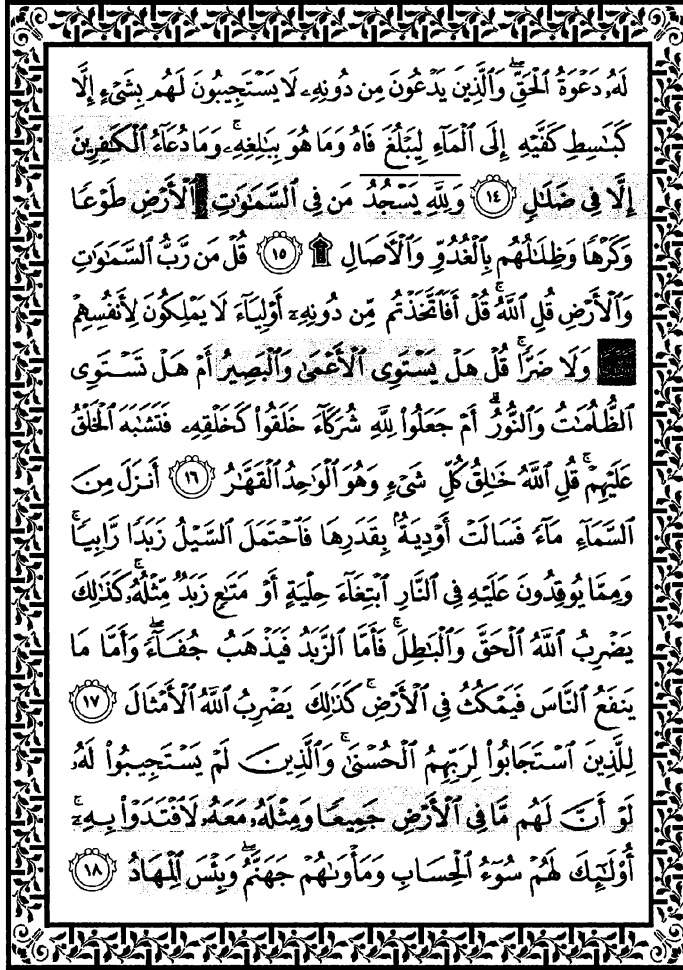 لَهُۥ دَعْوَةُ ٱلْحَقِّ ۖ وَٱلَّذِينَ يَدْعُونَ مِن دُونِهِۦ لَا يَسْتَجِيبُونَ لَهُم بِشَىْءٍ إِلَّا
كَبَـٰسِطِ كَفَّيْهِ إِلَى ٱلْمَآءِ لِيَبْلُغَ فَاهُ وَمَا هُوَ بِبَـٰلِغِهِۦ ۚ وَمَا دُعَآءُ ٱلْكَـٰفِرِينَ
إِلَّا فِى ضَلَـٰلٍ ١٤ وَلِلَّهِ يَسْجُدُ مَن فِى ٱلسَّمَـٰوَٰتِ ٱلْأَرْضِ طَوْعًا
وَكَرْهًا وَظِلَـٰلُهُم بِٱلْغُدُوِّ وَٱلْـَٔاصَالِ ۩ ١٥ قُلْ مَن رَّبُّ ٱلسَّمَـٰوَٰتِ
وَٱلْأَرْضِ قُلِ ٱللَّهُ ۚ قُلْ أَفَٱتَّخَذْتُم مِّن دُونِهِۦٓ أَوْلِيَآءَ لَا يَمْلِكُونَ لِأَنفُسِهِمْ
وَلَا ضَرًّا ۚ قُلْ هَلْ يَسْتَوِى ٱلْأَعْمَىٰ وَٱلْبَصِيرُ أَمْ هَلْ تَسْتَوِى
ٱلظُّلُمَـٰتُ وَٱلنُّورُ ۗ أَمْ جَعَلُوا۟ لِلَّهِ شُرَكَآءَ خَلَقُوا۟ كَخَلْقِهِۦ فَتَشَـٰبَهَ ٱلْخَلْقُ
عَلَيْهِمْ ۚ قُلِ ٱللَّهُ خَـٰلِقُ كُلِّ شَىْءٍ وَهُوَ ٱلْوَٰحِدُ ٱلْقَهَّـٰرُ ١٦ أَنزَلَ مِنَ
ٱلسَّمَآءِ مَآءً فَسَالَتْ أَوْدِيَةٌۢ بِقَدَرِهَا فَٱحْتَمَلَ ٱلسَّيْلُ زَبَدًا رَّابِيًا ۚ
وَمِمَّا يُوقِدُونَ عَلَيْهِ فِى ٱلنَّارِ ٱبْتِغَآءَ حِلْيَةٍ أَوْ مَتَـٰعٍ زَبَدٌ مِّثْلُهُۥ ۚ كَذَٰلِكَ
يَضْرِبُ ٱللَّهُ ٱلْحَقَّ وَٱلْبَـٰطِلَ ۚ فَأَمَّا ٱلزَّبَدُ فَيَذْهَبُ جُفَآءً ۖ وَأَمَّا مَا
يَنفَعُ ٱلنَّاسَ فَيَمْكُثُ فِى ٱلْأَرْضِ ۚ كَذَٰلِكَ يَضْرِبُ ٱللَّهُ ٱلْأَمْثَالَ ١٧
لِلَّذِينَ ٱسْتَجَابُوا۟ لِرَبِّهِمُ ٱلْحُسْنَىٰ ۚ وَٱلَّذِينَ لَمْ يَسْتَجِيبُوا۟ لَهُۥ
لَوْ أَنَّ لَهُم مَّا فِى ٱلْأَرْضِ جَمِيعًا وَمِثْلَهُۥ مَعَهُۥ لَٱفْتَدَوْا۟ بِهِۦٓ ۚ
أُو۟لَـٰٓئِكَ لَهُمْ سُوٓءُ ٱلْحِسَابِ وَمَأْوَىٰهُمْ جَهَنَّمُ ۖ وَبِئْسَ ٱلْمِهَادُ ١٨